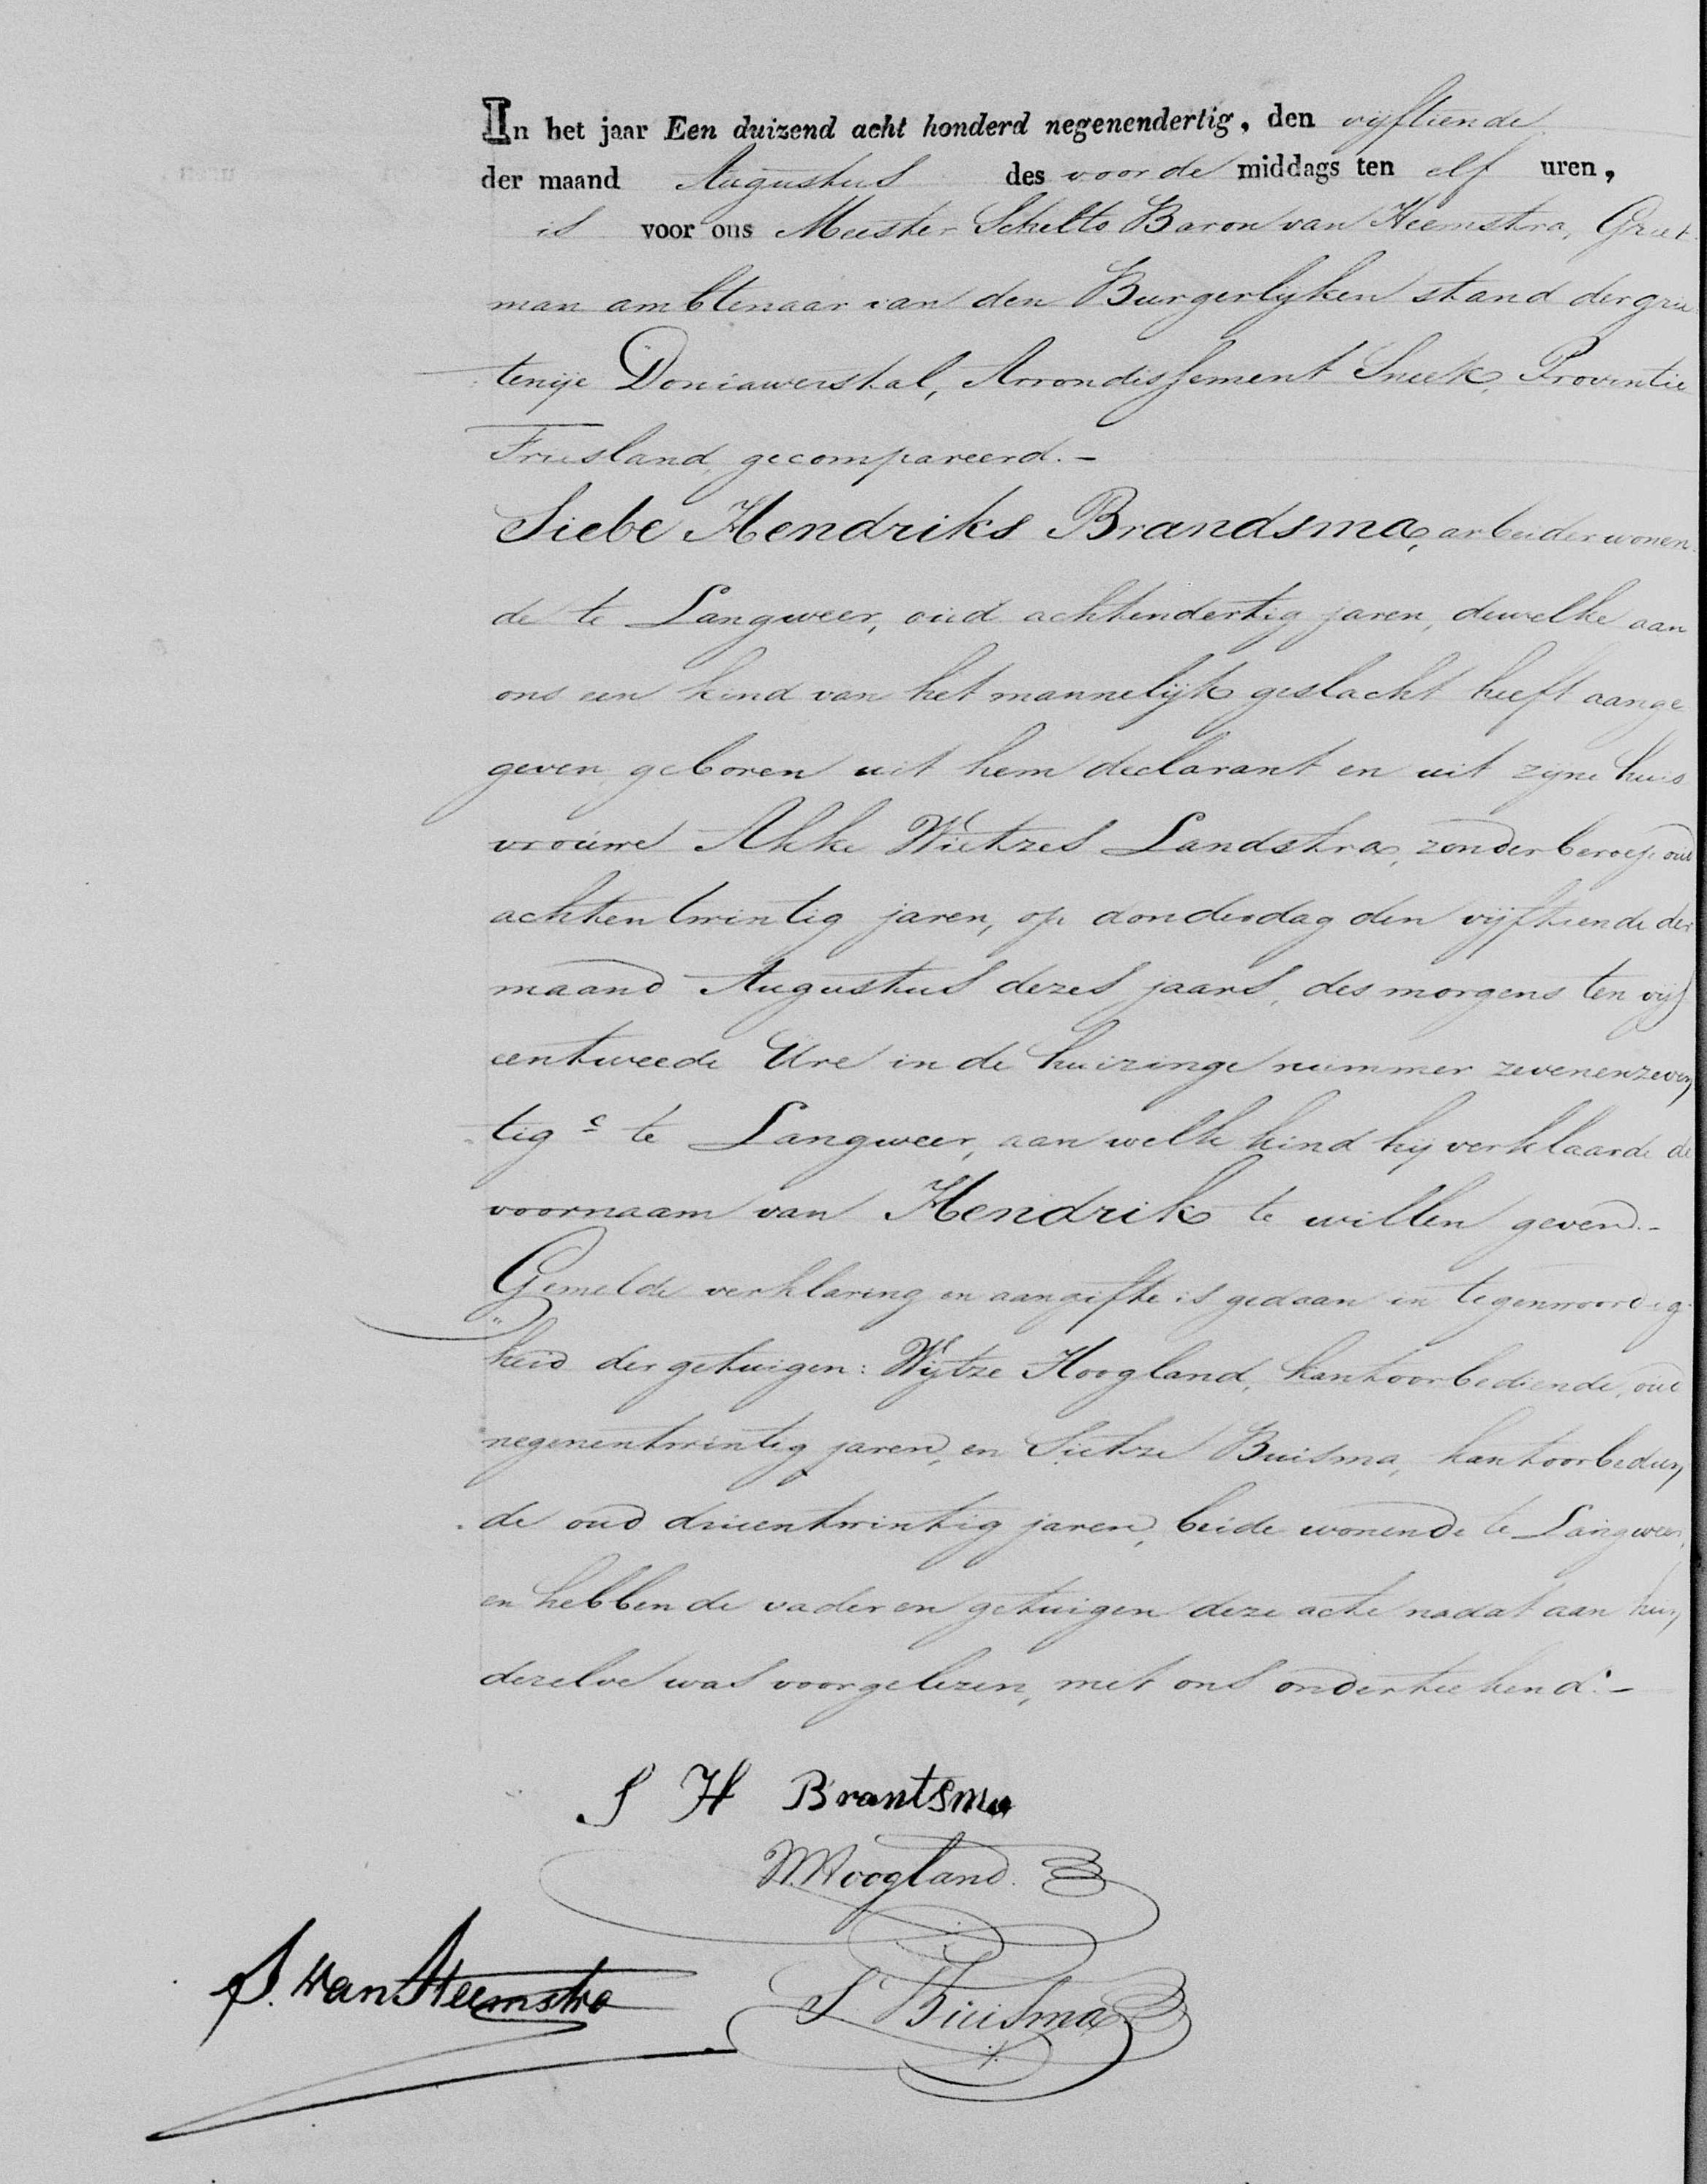 In het jaar Een duizend acht honderd negenendertig, den vijftiende
der maand Augustus des voor de middags ten elf uren,
is voor ons Meester Schelto Baron van Heemstra, Griet
man ambtenaar van den Burgerlijken stand der grie
tenije Doniawerstal, Arrondissement Sneek, Provintie
Friesland, gecompareerd.-
Siebe Hendriks Brandsma, arbeider wonen
de te Langweer, oud achtendertig jaren, dewelke aan
ons een kind van het mannelijk geslacht heeft aange
geven, geboren uit hem declarant en uit zijne huis
vrouwe Akke Wietzes Landstra, zonder beroep oud
achtentwintig jaren, op donderdag den vijftiende der
maand Augustus dezes jaars, des morgens ten vijf
eentweede Ure in de huizinge nummer zevenenzeven
tig c te Langweer, aan welk kind hij verklaarde de
voornaam van Hendrik te willen geven.-
Gemelde verklaring en aangifte is gedaan in tegenwoordig
heid der getuigen: Wijtze Hoogland, kantoorbediende, oud
negenentwintig jaren, en Sietze Buisma, kantoorbedien
de oud drieentwintig jaren, beide wonende te Langweer,
en hebben de vader en getuigen deze acte nadat aan hun
dezelve was voorgelezen, met ons onderteekend.-
S H Brantsma
W. Hoogland.
S. van Heemstra
S Buisma